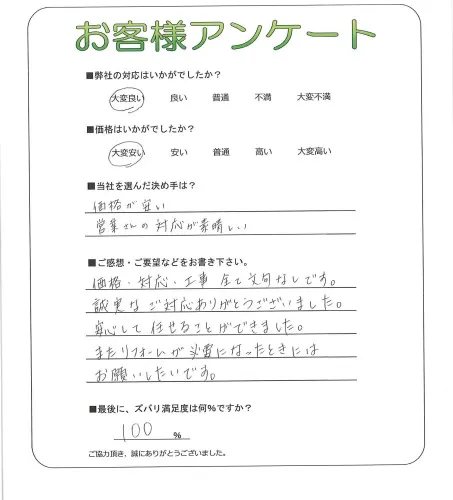 お客様アンケート
■弊社の対応はいかがでしたか？
大変良い 良い 普通 不満 大変不満
■価格はいかがでしたか？
大変安い 安い 普通 高い 大変高い
■当社を選んだ決め手は？
価格が安い
営業さんの対応が素晴しい
■ご感想・ご要望などをお書き下さい。
価格・対応・工事 全て文句なしです。
誠実なご対応ありがとうございました。
安心して任せることができました。
またリフォームが必要になったときには
お願いしたいです。
■最後に、ズバリ満足度は何%ですか？
100 %
ご協力頂き、誠にありがとうございました。